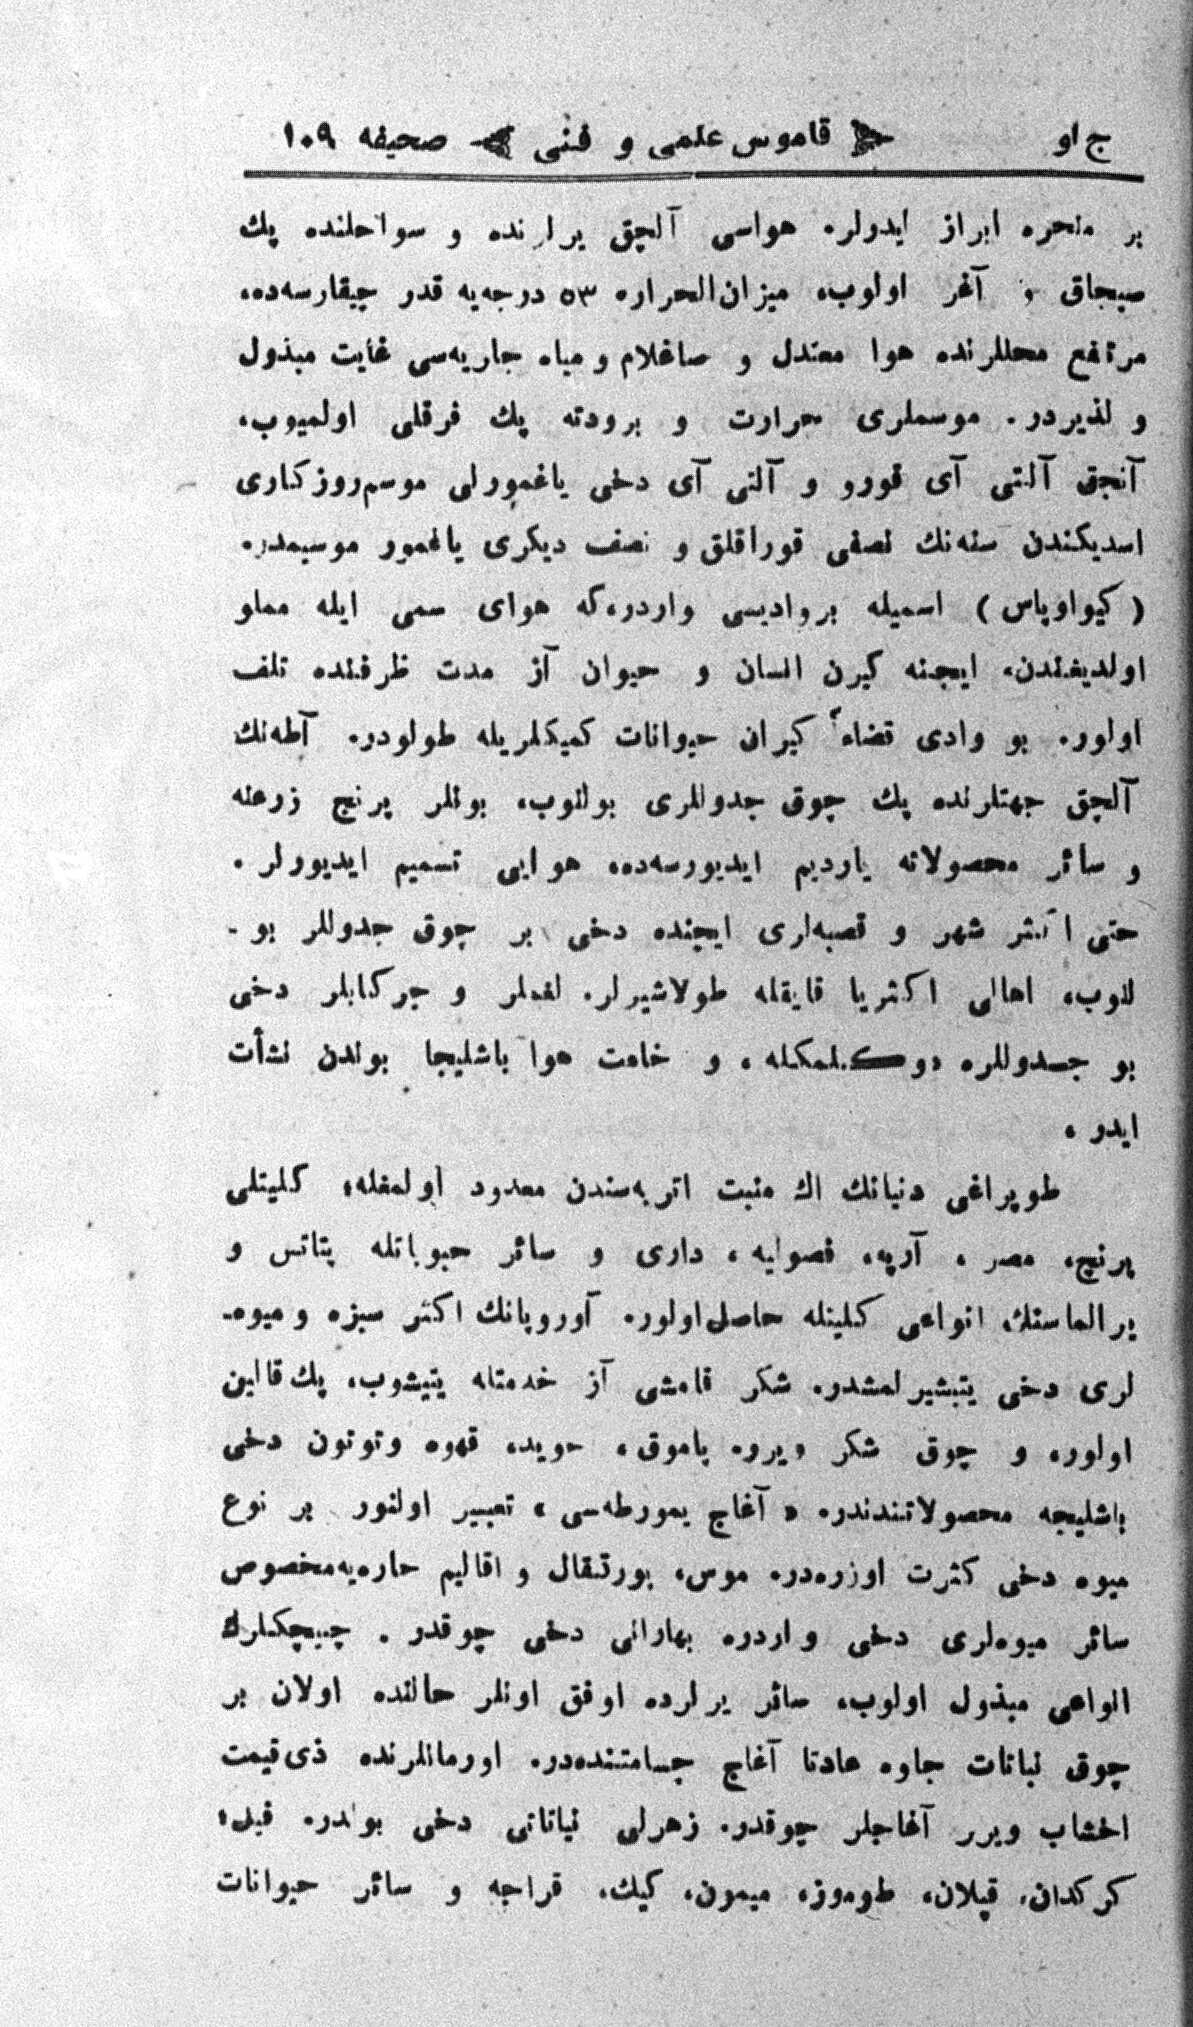 ج او ﴿ قاموس علمی و فنی ﴾ صحیفه ١٠٩
بر منحره ابراز ایدولر. هواسی آلچق یرلرنده و سواحلنده پك
صیجاق و آغر اولوب، میزان‌الحراره ٥٣ درجه‌یه قدر چیقارسه‌ده،
مرتفع محللرنده هوا معتدل و صاغلام و میاه جاریه‌سی غایت مبذول
و لذیردر. موسملری حرارت و برودته پك فرقلی اولمیوب،
آنجق آلتی آی قورو و آلتی آی دخی یاغمورلی موسم‌روزكاری
اسدیكندن سنه‌نك نصفی قوراقلق و نصف دیكری یاغمور موسیمدر.
( كیواوپاس ) اسمیله بروادیسی واردر،كه هوای سمی ایله مملو
اولدیغندن، ایچنه كیرن انسان و حیوان آز مدت ظرفنده تلف
اولور. بو وادی قضاءً كیران حیوانات كمیكلریله طولودر. آطه‌نك
آلچق جهتلرنده پك چوق جدوللری بولنوب، بونلر پرنج زرعنه
و سائر محصولاته یاردیم ایدیورسه‌ده، هوایی تسمیم ایدیوولر.
حتی اكثر شهر و قصبه‌لری ایچنده دخی بر چوق جدوللر بو-
لنوب، اهالی اكثریا قایقله طولاشیرلر. لغملر و چركابلر دخی
بو جدوللره دوكیلمكله، و خامت هوا باشلیجا بوندن نشأت
ایدر،
طوپراغی دنیانك اك منبت اتربه‌سندن معدود اولمغله، كلیتلی
پرنچ، مصر، آرپه، فصولیه، داری و سائر حبوباتله پتاتس و
یرالماسنك انواعی كلیتله حاصل‌اولور. آوروپانك اكثر سبزه و میوه-
لری دخی یتیشیرلمشدر. شكر قامشی آز خدمتله یتیشوب، پك‌قالین
اولور، و چوق شكر ویرو. پاموق، جوید، قهوه وتوتون دخی
باشلیجه محصولاتندندر. « آغاج یمورطه‌سی » تعبیر اولنور بر نوع
میوه دخی كثرت اوزره‌در. موس، بورتقال و اقالیم حاره‌یه‌مخصوص
سائر میوه‌لری دخی واردره بهاراتی دخی چوقدر. چیچكلرك
انواعی مبذول اولوب، سائر یرلرده اوفق اونلر حالنده اولان بر
چوق نباتات جاوه عادتا آغاج جسامتنده‌در. اورمانلرنده ذی‌قیمت
اخشاب ویرر آغاجلر چوقدر. زهرلی نیاتاتی دخی بولدر. فیل،
كركدان، قپلان، طوموز، میمون، كیك، قراجه و سائر حیوانات